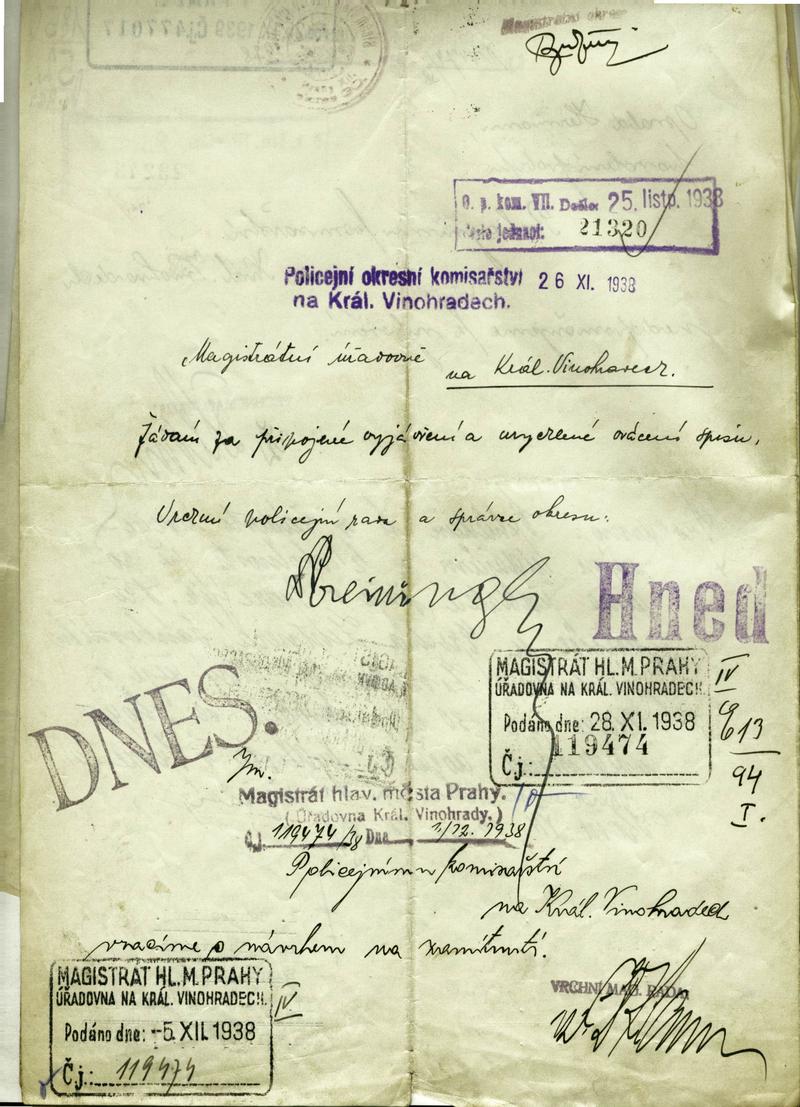 O. p. kom. VII. Došlo: 25. listp. 1938
Číslo jednací: 21320
Policejní okresní komisařství 26 XI. 1938
na Král. Vinohradech.
Magistrátní úřadovně
na Král. Vinohradech.
Žádám za připojené vyjádření a urychlené vrácení spisu.
Vrchní policejní rada a správce okresu:
Hned
MAGISTRÁT HL. M. PRAHY
ÚŘADOVNA NA KRÁL. VINOHRADECH.
Podáno dne: 28. XI. 1938
Č.j.: 119474
IV
613
94
I.
DNES.
Magistrát hlav. města Prahy.
(Úřadovna Král. Vinohrady.)
Č.j. 119474/38 Dne 1/12. 1938
Policejnímu komisařství
na Král. Vinohradech
vracíme s návrhem na zamítnutí.
VRCHNÍ MAG. RADA:
MAGISTRÁT HL. M. PRAHY
ÚŘADOVNA NA KRÁL. VINOHRADECH.
IV
Podáno dne: -5. XII. 1938
Č.j.: 119474